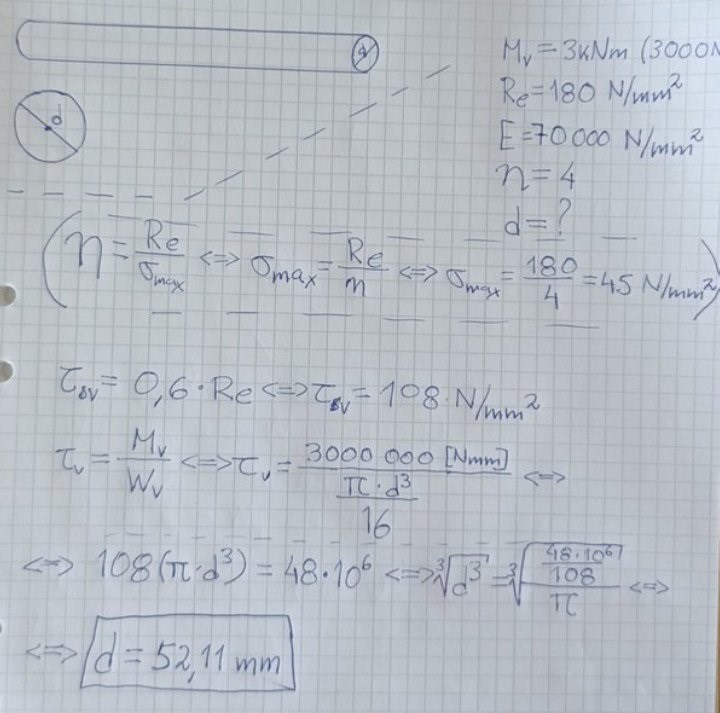 d
M_v = 3kNm (3000N
Re = 180 N/mm²
d
E = 70 000 N/mm²
n = 4
d = ?
(n = Re/σ_max <=> σ_max = Re/n <=> σ_max = 180/4 = 45 N/mm²)
τ_sv = 0,6 · Re <=> τ_sv = 108 N/mm²
τ_v = M_v/W_v <=> τ_v = 3000 000 [Nmm]/(π · d³/16) <=>
<=> 108(π · d³) = 48 · 10⁶ <=> ³√d³ = ³√((48 · 10⁶/108)/π) <=>
<=> d = 52,11 mm